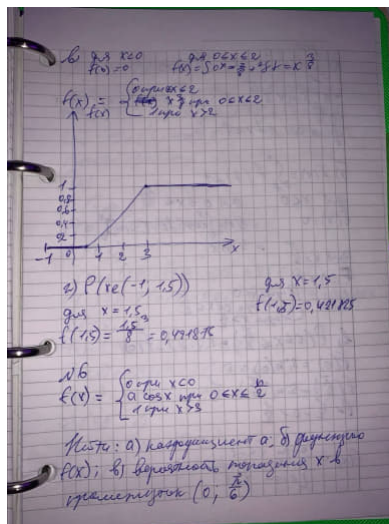 в для x<0 для 0≤x≤2
f(x)=0
f(x) = { 0 при x≤2
x³ при 0≤x≤2
f(x)
1 при x>2
1
0,8
0,6
0,4
-1 0 1 2 3 x
г) P(xϵ(-1, 1,5)) для x = 1,5
для x = 1,5 f(1,5)=0,421875
f(1,5) = 1,5³/8 = 0,421875
№6
f(x) = { 0 при x<0
a cosx при 0≤x≤ π/2
1 при x>3
Найти: а) коэффициент а, б) функцию
f(x); в) вероятность попадания x в
промежуток (0; π/6)